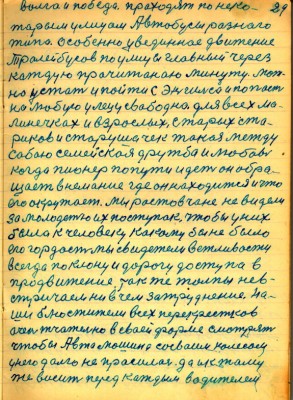 волга и победа. проходят по неко- 29
торым улицам Автобусы разного
типа. Особенно увединное движение
Тролейбусов по улицы главный через
каждую прочитаную минуту. мож-
но устат и пойти с Энгилса и попаст
на любую улецу свабодна. для всех ма-
линечках и взрослых, старих ста-
риков и старушачек такая между
сабою семейская дружба и любовь.
когда пионер по пути идет он обра-
щает внемание где он находится и что
его окружает. мы растовчане не видем
за молодеть их поступак, чтобы у них
была к человеку какому бы не было
его гордаст. мы свидетели ветливости
всегда поклону и дорогу доступа в
продвижение, так те толпы не в-
стричаем на в чем затруднение. на-
ши блюстители всех перекрестков
очен тчатено в сваей форме смотрят
чтобы Авто машина со сваим колесом
у него долго не прасилас. да и к таму
же висит перед каждым водителем